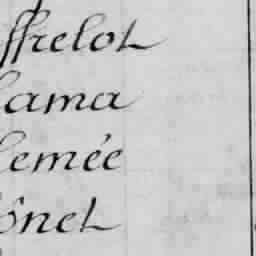 ffrelot
lama
lemée
ônet